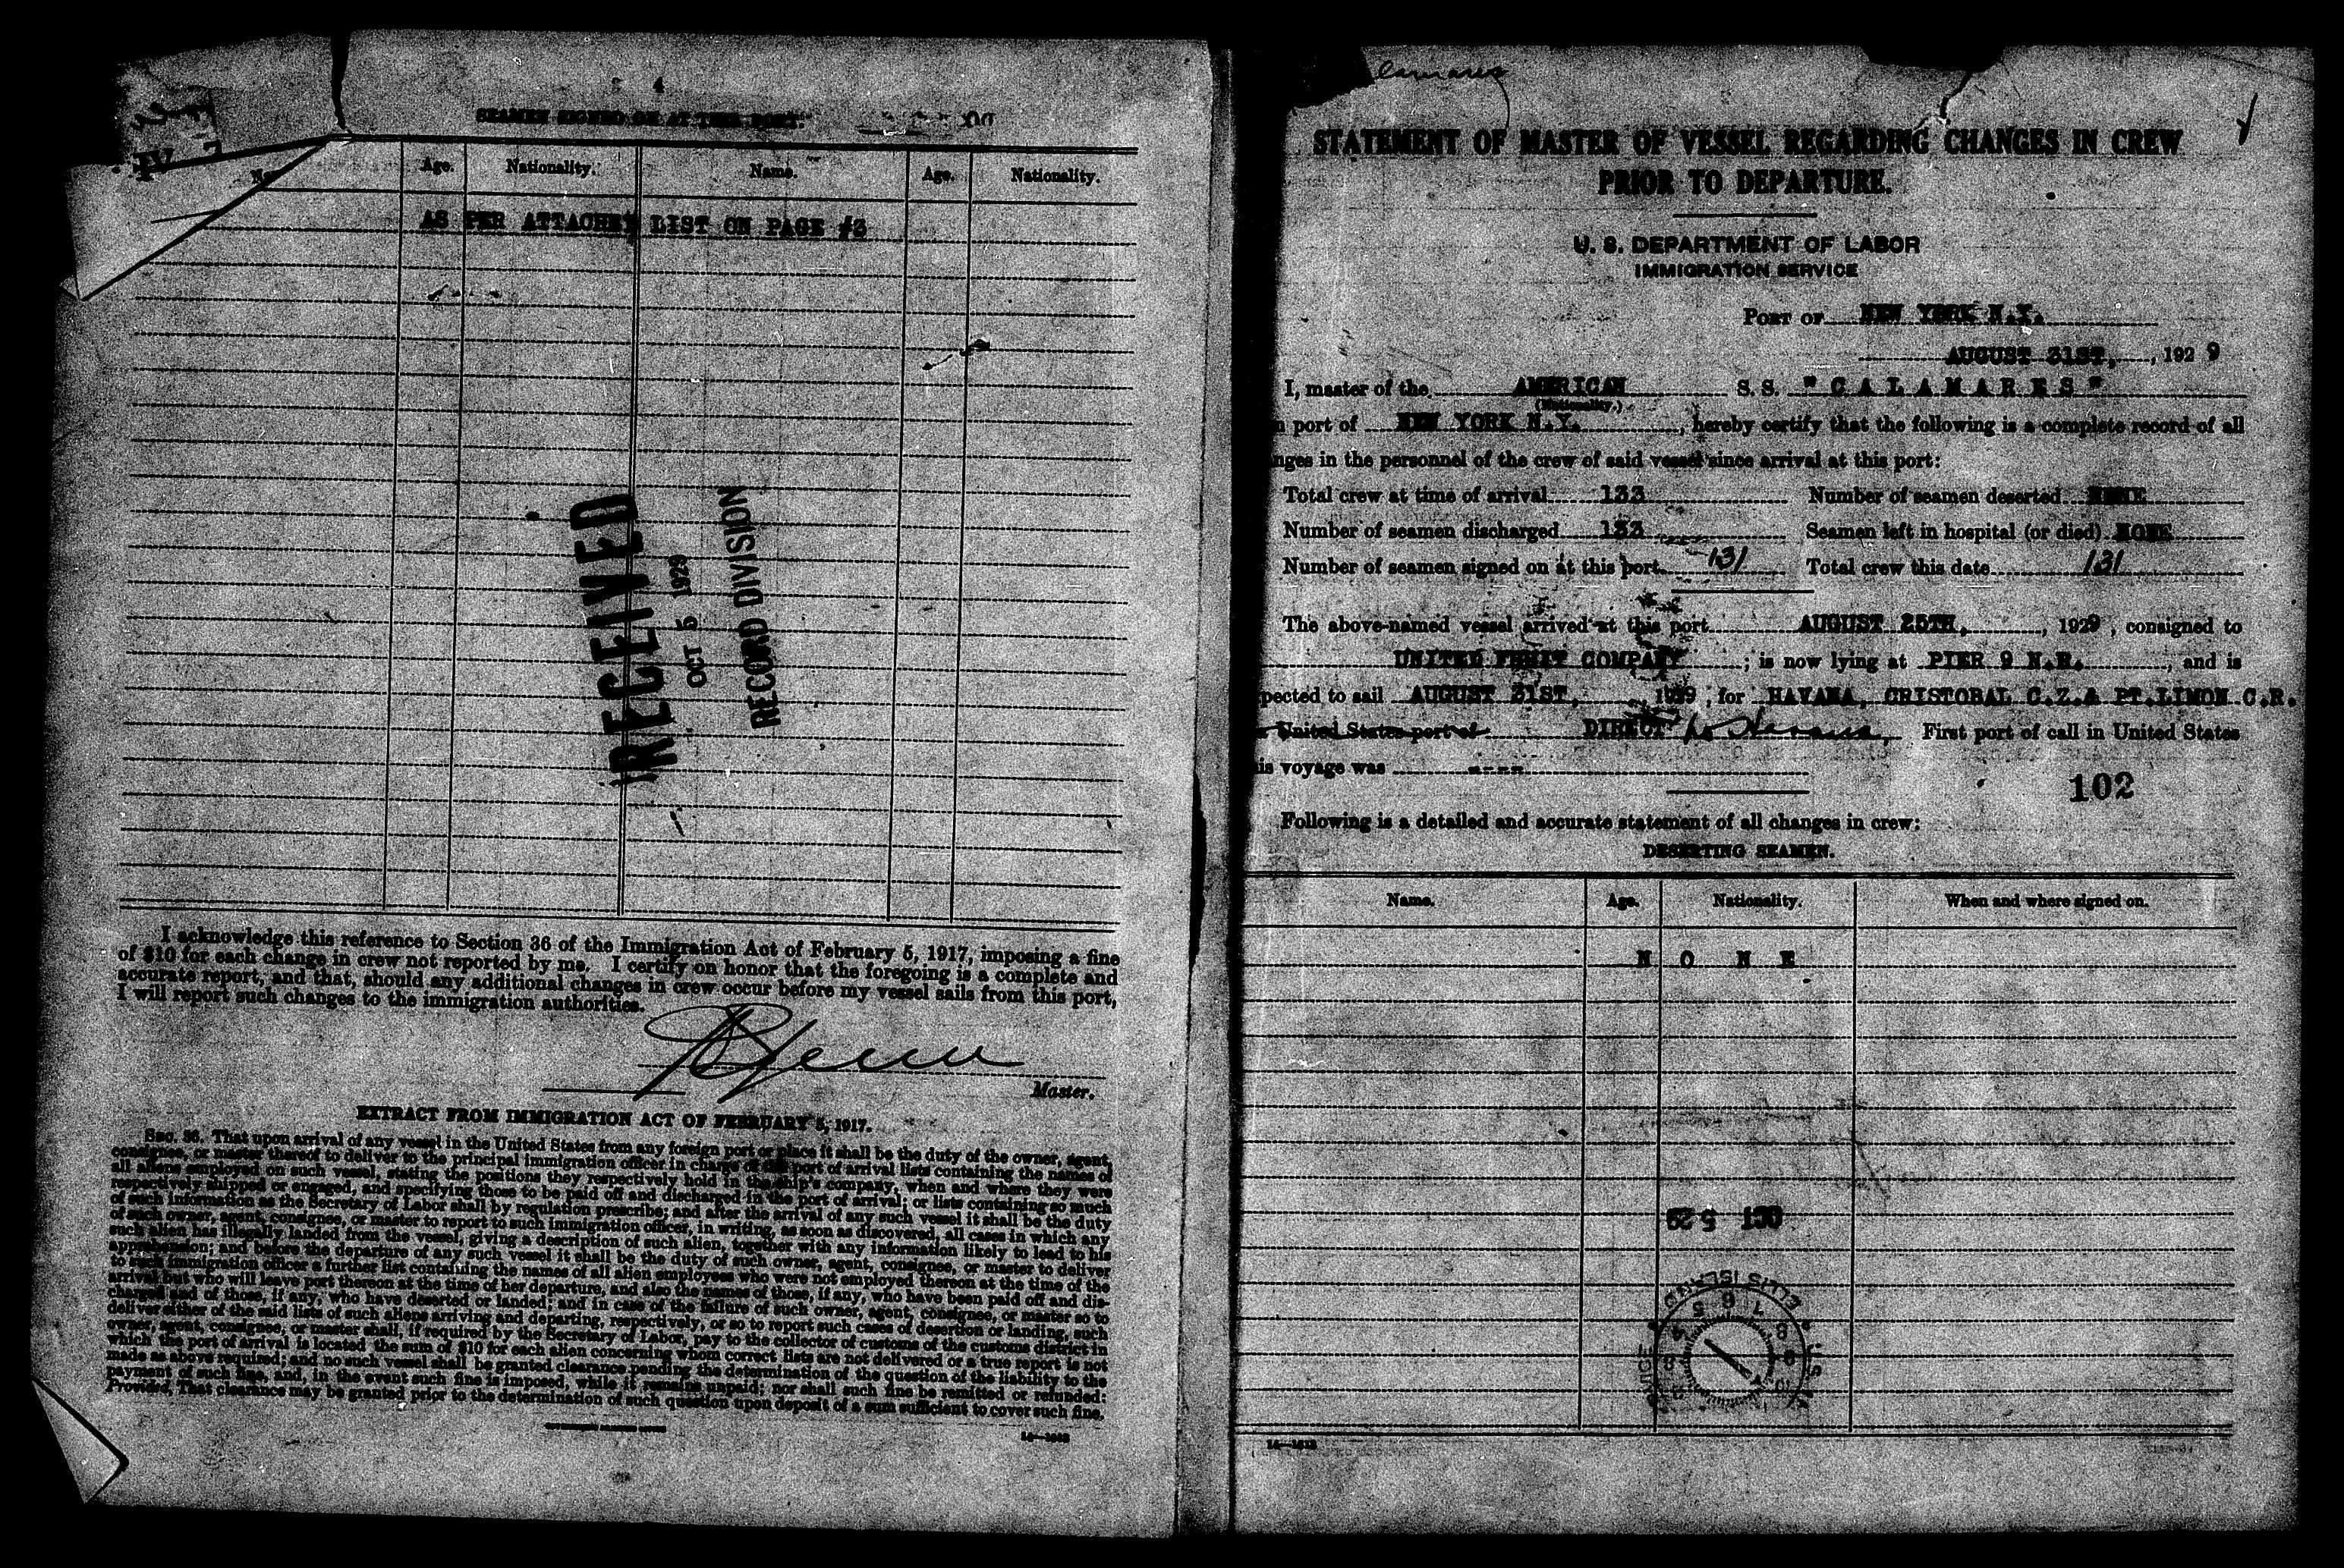 4
SEAMEN SIGNED ON AT THIS PORT.
Age. Nationality. Name. Age. Nationality.
AS PER ATTACHED LIST ON PAGE #3
RECEIVED
OCT 5 1929
RECORD DIVISION
I acknowledge this reference to Section 36 of the Immigration Act of February 5, 1917, imposing a fine
of $10 for each change in crew not reported by me. I certify on honor that the foregoing is a complete and
accurate report, and that, should any additional changes in crew occur before my vessel sails from this port,
I will report such changes to the immigration authorities.
Master.
EXTRACT FROM IMMIGRATION ACT OF FEBRUARY 5, 1917.
SEC. 36. That upon arrival of any vessel in the United States from any foreign port or place it shall be the duty of the owner, agent,
consignee, or master thereof to deliver to the principal immigration officer in charge of the port of arrival lists containing the names of
all aliens employed on such vessel, stating the positions they respectively hold in the ship's company, when and where they were
respectively shipped or engaged, and specifying those to be paid off and discharged in the port of arrival; or lists containing so much
of such information as the Secretary of Labor shall by regulation prescribe; and after the arrival of any such vessel it shall be the duty
of such owner, agent, consignee, or master to report to such immigration officer, in writing, as soon as discovered, all cases in which any
such alien has illegally landed from the vessel, giving a description of such alien, together with any information likely to lead to his
apprehension; and before the departure of any such vessel it shall be the duty of such owner, agent, consignee, or master to deliver
to such immigration officer a further list containing the names of all alien employees who were not employed thereon at the time of the
arrival but who will leave port thereon at the time of her departure, and also the names of those, if any, who have been paid off and dis-
charged and of those, if any, who have deserted or landed; and in case of the failure of such owner, agent, consignee, or master so to
deliver either of the said lists of such aliens arriving and departing, respectively, or so to report such cases of desertion or landing, such
owner, agent, consignee, or master shall, if required by the Secretary of Labor, pay to the collector of customs of the customs district in
which the port of arrival is located the sum of $10 for each alien concerning whom correct lists are not delivered or a true report is not
made as above required; and no such vessel shall be granted clearance pending the determination of the question of the liability to the
payment of such fine, and, in the event such fine is imposed, while it remains unpaid; nor shall such fine be remitted or refunded:
Provided, That clearance may be granted prior to the determination of such question upon deposit of a sum sufficient to cover such fine.
lamares
STATEMENT OF MASTER OF VESSEL REGARDING CHANGES IN CREW
PRIOR TO DEPARTURE.
U. S. DEPARTMENT OF LABOR
IMMIGRATION SERVICE
PORT OF NEW YORK N.Y.
AUGUST 31ST, , 1929
I, master of the AMERICAN S. S. "CALAMARES"
(Nationality.)
port of NEW YORK N.Y. , hereby certify that the following is a complete record of all
nges in the personnel of the crew of said vessel since arrival at this port:
Total crew at time of arrival 133 Number of seamen deserted NONE
Number of seamen discharged 133 Seamen left in hospital (or died) NONE
Number of seamen signed on at this port 131 Total crew this date 131
The above-named vessel arrived at this port AUGUST 25TH, , 1929 , consigned to
UNITED FRUIT COMPANY ; is now lying at PIER 9 N.R. , and is
pected to sail AUGUST 31ST, 1929 , for HAVANA, CRISTOBAL C.Z.& PT.LIMON C.R.
United States port of DIRECT to Havana, First port of call in United States
is voyage was ----
102
Following is a detailed and accurate statement of all changes in crew:
DESERTING SEAMEN.
Name. Age. Nationality. When and where signed on.
N O N E
OCT 5 29
ELLIS ISLAND
14—1612